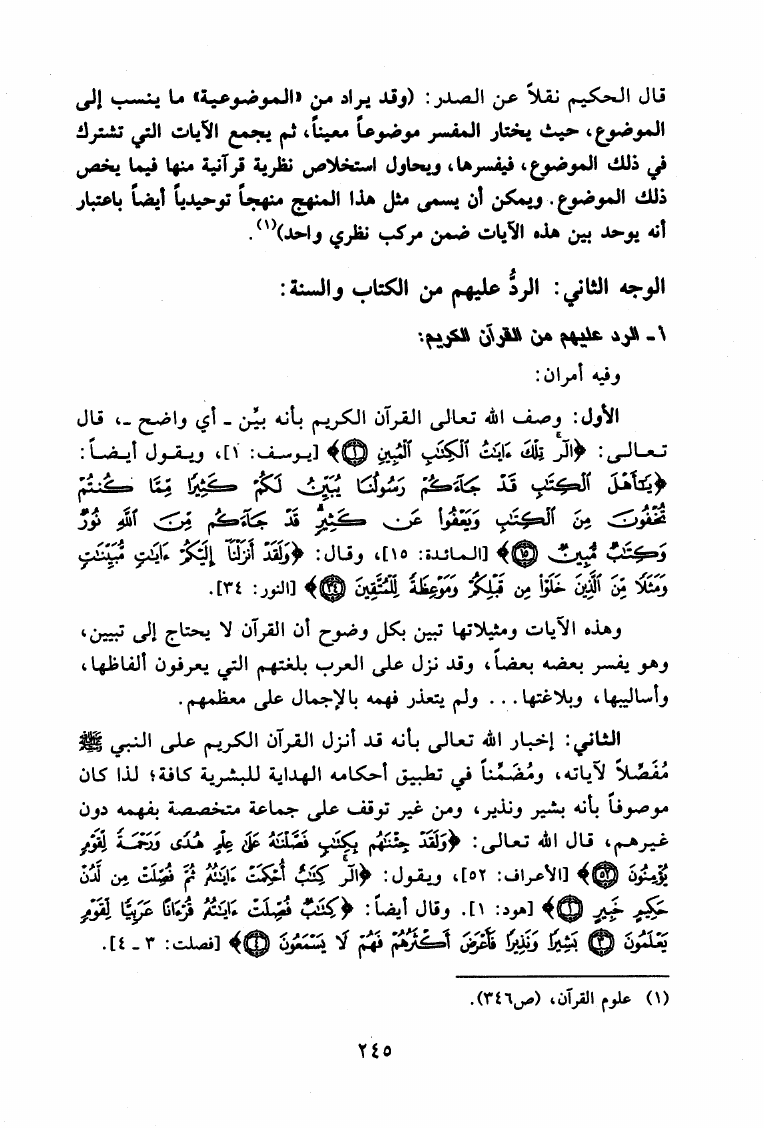 قال الحكيم نقلاً عن الصدر: (وقد يراد من «الموضوعية» ما ينسب إلى
الموضوع، حيث يختار المفسر موضوعاً معيناً، ثم يجمع الآيات التي تشترك
في ذلك الموضوع، فيفسرها، ويحاول استخلاص نظرية قرآنية منها فيما يخص
ذلك الموضوع. ويمكن أن يسمى مثل هذا المنهج منهجاً توحيدياً أيضاً باعتبار
أنه يوحد بين هذه الآيات ضمن مركب نظري واحد)(١).
الوجه الثاني: الردُّ عليهم من الكتاب والسنة:
١ - الرد عليهم من القرآن الكريم:
وفيه أمران:
الأول: وصف الله تعالى القرآن الكريم بأنه بيِّن - أي واضح -، قال
تعالى: ﴿الٓرۚ تِلۡكَ ءَايَٰتُ ٱلۡكِتَٰبِ ٱلۡمُبِينِ ١﴾ [يوسف: ١]، ويقول أيضاً:
﴿يَٰٓأَهۡلَ ٱلۡكِتَٰبِ قَدۡ جَآءَكُمۡ رَسُولُنَا يُبَيِّنُ لَكُمۡ كَثِيرٗا مِّمَّا كُنتُمۡ
تُخۡفُونَ مِنَ ٱلۡكِتَٰبِ وَيَعۡفُواْ عَن كَثِيرٖۚ قَدۡ جَآءَكُم مِّنَ ٱللَّهِ نُورٞ
وَكِتَٰبٞ مُّبِينٞ ١٥﴾ [المائدة: ١٥]، وقال: ﴿وَلَقَدۡ أَنزَلۡنَآ إِلَيۡكُمۡ ءَايَٰتٖ مُّبَيِّنَٰتٖ
وَمَثَلٗا مِّنَ ٱلَّذِينَ خَلَوۡاْ مِن قَبۡلِكُمۡ وَمَوۡعِظَةٗ لِّلۡمُتَّقِينَ ٣٤﴾ [النور: ٣٤].
وهذه الآيات ومثيلاتها تبين بكل وضوح أن القرآن لا يحتاج إلى تبيين،
وهو يفسر بعضه بعضاً، وقد نزل على العرب بلغتهم التي يعرفون ألفاظها،
وأساليبها، وبلاغتها... ولم يتعذر فهمه بالإجمال على معظمهم.
الثاني: إخبار الله تعالى بأنه قد أنزل القرآن الكريم على النبي ﷺ
مُفَصِّلاً لآياته، ومُضَمِّناً في تطبيق أحكامه الهداية للبشرية كافة؛ لذا كان
موصوفاً بأنه بشير ونذير، ومن غير توقف على جماعة متخصصة بفهمه دون
غيرهم، قال الله تعالى: ﴿وَلَقَدۡ جِئۡنَٰهُم بِكِتَٰبٖ فَصَّلۡنَٰهُ عَلَىٰ عِلۡمٍ هُدٗى وَرَحۡمَةٗ لِّقَوۡمٖ
يُؤۡمِنُونَ ٥٢﴾ [الأعراف: ٥٢]، ويقول: ﴿الٓرۚ كِتَٰبٌ أُحۡكِمَتۡ ءَايَٰتُهُۥ ثُمَّ فُصِّلَتۡ مِن لَّدُنۡ
حَكِيمٍ خَبِيرٍ ١﴾ [هود: ١]. وقال أيضاً: ﴿كِتَٰبٞ فُصِّلَتۡ ءَايَٰتُهُۥ قُرۡءَانًا عَرَبِيّٗا لِّقَوۡمٖ
يَعۡلَمُونَ ٣ بَشِيرٗا وَنَذِيرٗا فَأَعۡرَضَ أَكۡثَرُهُمۡ فَهُمۡ لَا يَسۡمَعُونَ ٤﴾ [فصلت: ٣ - ٤].
(١) علوم القرآن، (ص٣٤٦).
٢٤٥